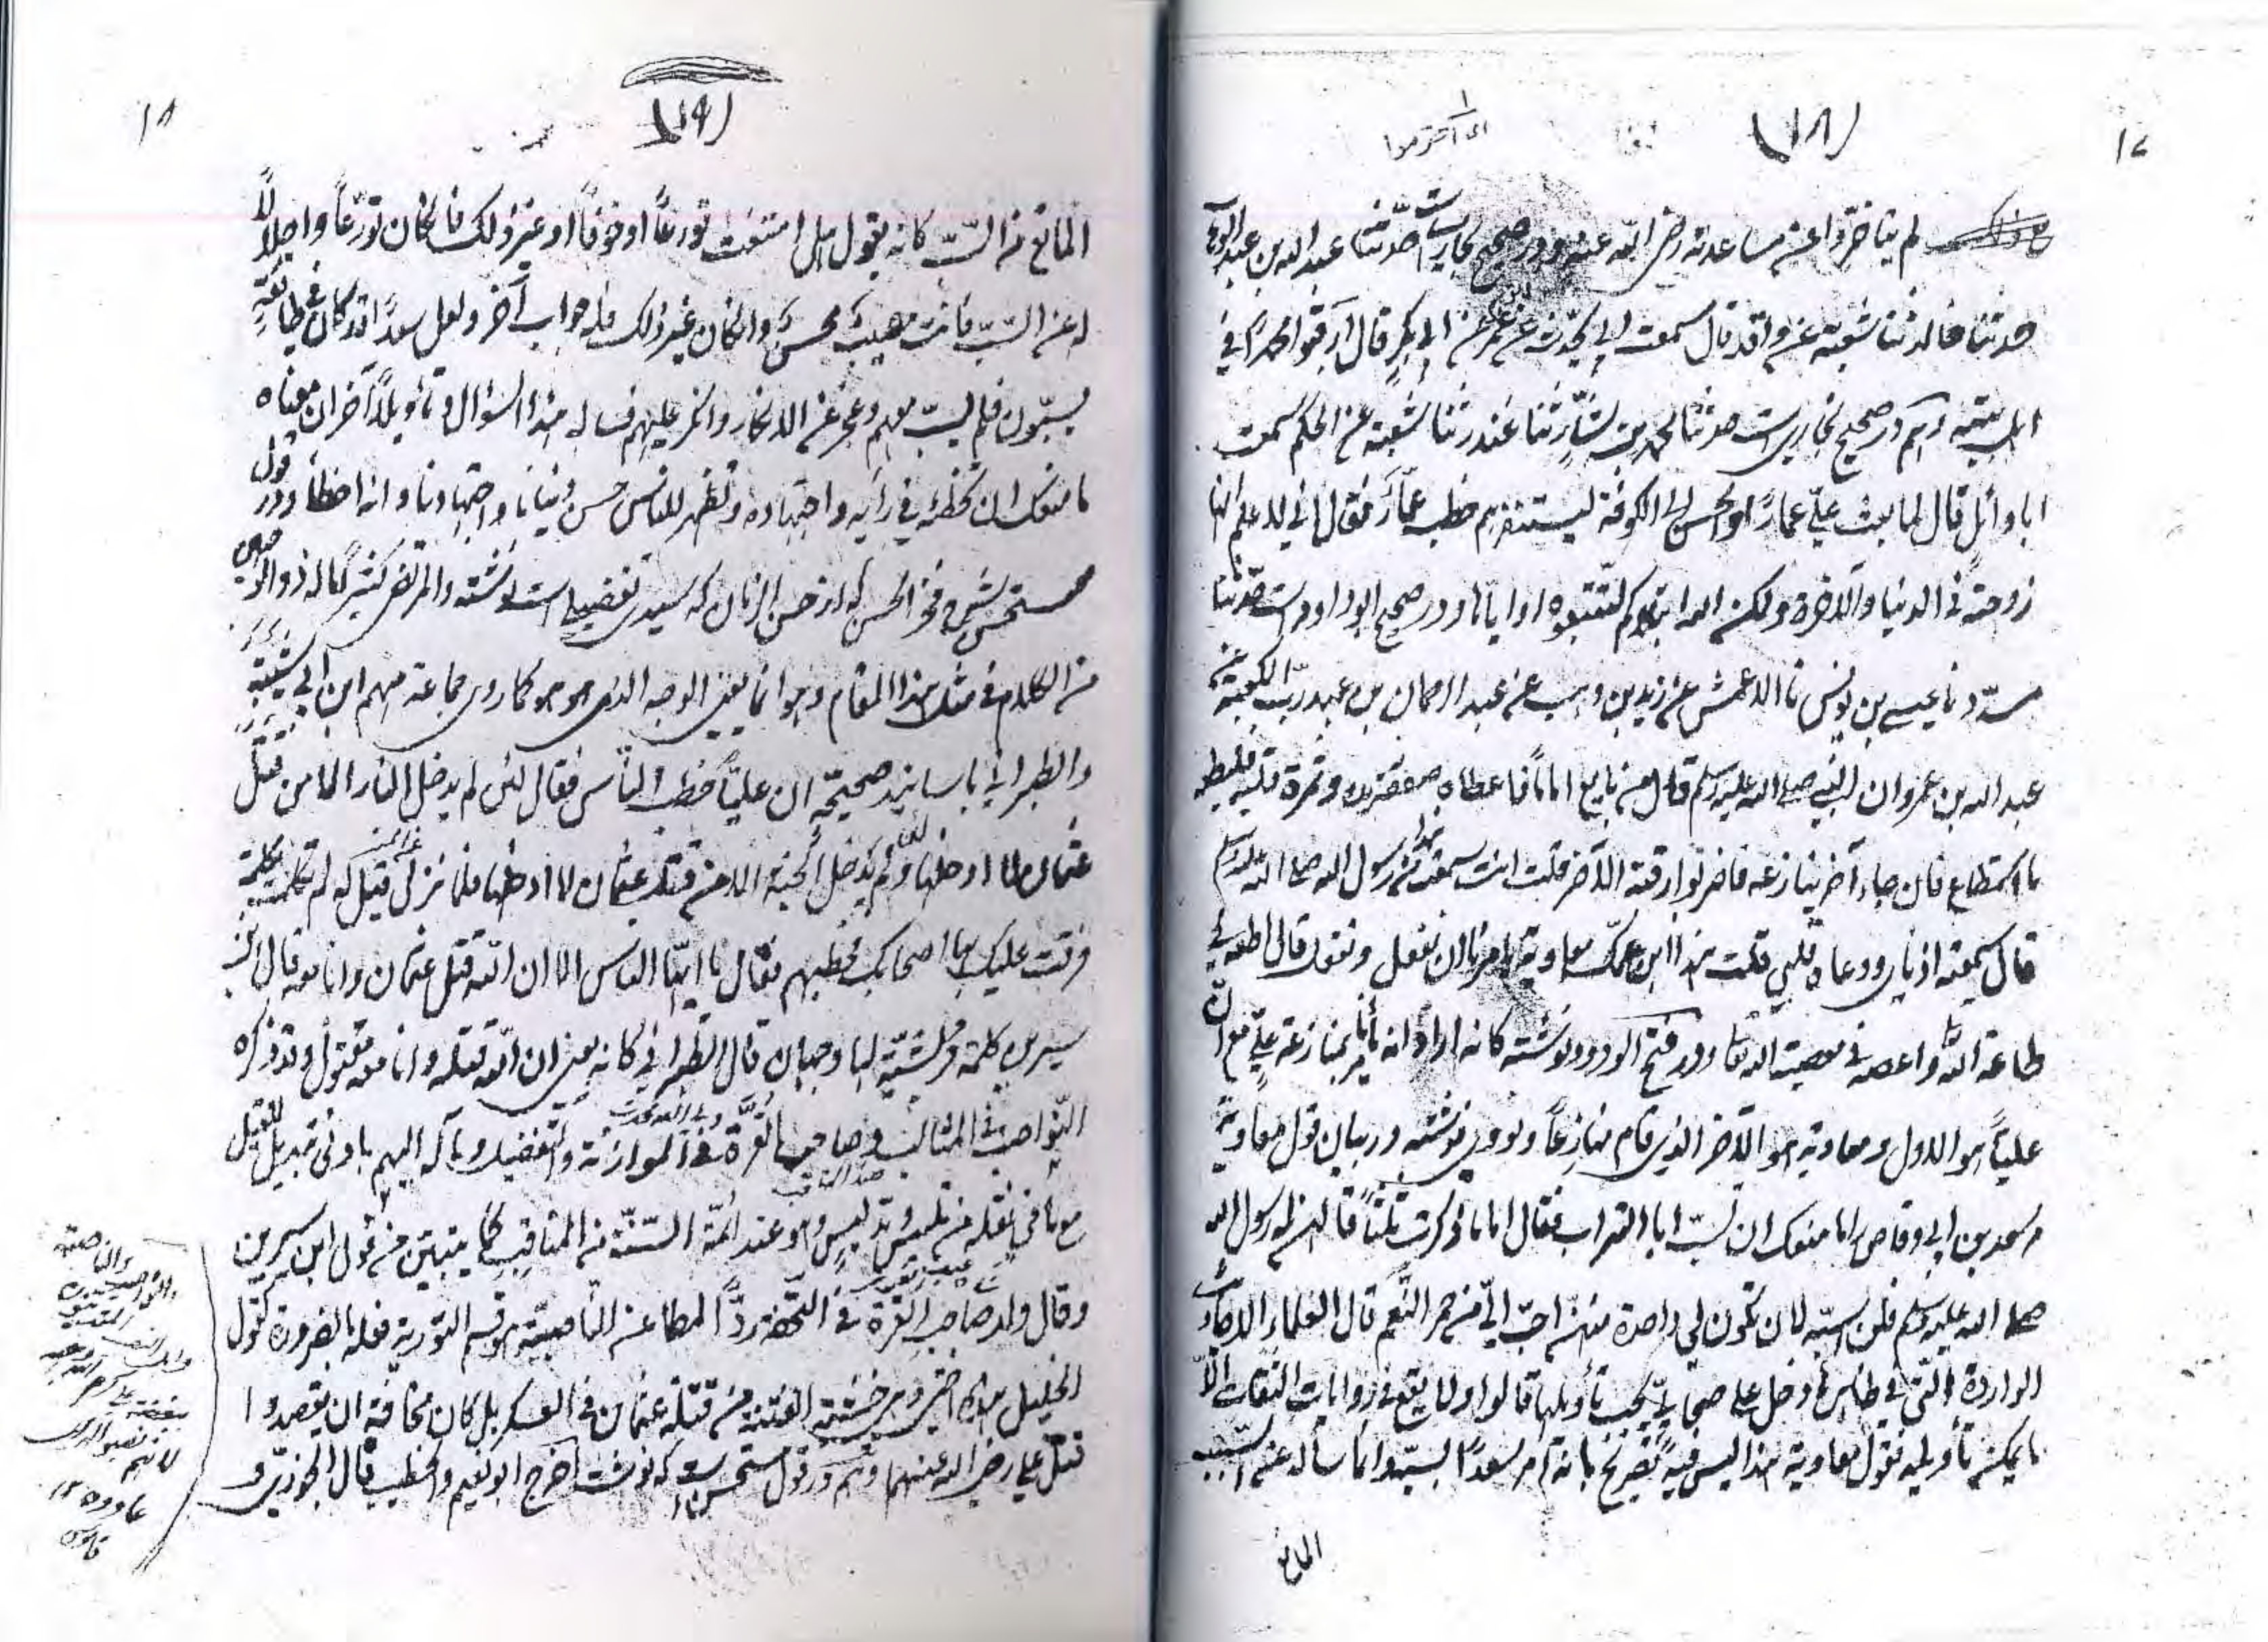 ١٧
(١٨)
ای احترموا
لم يتأخروا عن مساعدته رضی الله عنه ودر صحيح بخاريست حدثنا عبد الله بن عبد الوهاب
حدثنا خالد ثنا شعبة عن واقد قال سمعت ابي يحدث عن ابن عمر عن ابي بكر قال ارقبوا محمدا في
اهل بيته وهم در صحيح بخاريست حدثنا محمد بن بشار ثنا غندر ثنا شعبة عن الحكم سمعت
ابا وائل قال لما بعث علي عمارا والحسن الى الكوفة ليستنفرهم خطب عمار فقال اني لاعلم انها
زوجته في الدنيا والآخرة ولكن الله ابتلاكم لتتبعوه او اياها ودر صحيح ابو داودست حدثنا
مسدد نا عيسى بن يونس نا الاعمش عن زيد بن وهب عن عبد الرحمان بن عبد رب الكعبة عن
عبد الله بن عمرو ان النبي صلى الله عليه وسلم قال من بايع اماما فاعطاه صفقة يده وثمرة قلبه فليطعه
ما استطاع فان جاء آخر ينازعه فاضربوا رقبة الآخر قلت انت سمعت هذا من رسول الله صلى الله عليه وسلم
قال سمعته اذناي ووعاه قلبي قلت هذا ابن عمك معاوية يامرنا ان نفعل ونفعل قال اطعه في
طاعة الله واعصه في معصية الله تعالى ودر فتح الودود نوشته كانه اراد انه يأمرنا بمنازعة علي مع ان
عليا هو الاول ومعاوية هو الآخر الذي قام منازعا ونووي نوشته در بيان قول معاوية
مر سعد بن ابي وقاص را ما منعك ان تسب ابا التراب فقال اما ما ذكرت ثلثا قالهن له رسول الله
صلى الله عليه وسلم فلن اسبه لان تكون لي واحدة منهن احب الي من حمر النعم قال العلماء الاحاديث
الواردة التي في ظاهرها دخل على صحابي يجب تأويلها قالوا ولا يقع في روايات الثقات الا
ما يمكن تأويله فقول معاوية هذا ليس فيه تصريح بانه امر سعدا بسبه وانما سأله عن السبب
المانع
١٨
(١٩)
المانع من السب كانه يقول هل امتنعت تورعا او خوفا او غير ذلك فان كان تورعا واجلالا
له عن السب فانت مصيب محسن وان كان غير ذلك فله جواب آخر ولعل سعدا قد كان في طائفة
يسبون فلم يسب معهم وعجز عن الانكار وانكر عليهم فسأله هذا السؤال وتأويلا آخر ان معناه
ما منعك ان تخطئه في رأيه واجتهاده وتظهر للناس حسن رأينا واجتهادنا وانه اخطأ ودر قول
مستحسن فخر الحسن كه از حسن الزمان كه سيدی تفضيلے است نوشته والمرتضى كثيرا ما له ذو الوجهين
من الكلام في مثل هذا المقام وهو انما يعني الوجه الذي هو هو كما روى جماعة منهم ابن ابي شيبة
والطبراني باسانيد صحيحة ان عليا خطب الناس فقال لئن لم يدخل النار الا من قتل
عثمان لا ادخلها ولئن لم يدخل الجنة الا من قتل عثمان لا ادخلها فلما نزل قيل له لم تكلمت بكلمة
فرقت عليك بها اصحابك فخطبهم فقال يا ايها الناس الا ان الله قتل عثمان وانا معه قال ابن
سيرين كلمة قرشية لها وجهان قال الطبراني كانه يعني ان الله قتله وانا معه مقتول وقد ذكره
النواصب في المثالب وصاحب القرة في الموازنة والتفضيل ومآله اليهم باونى تبديل للقيل
مع ما في نقله من تلبيس وتدليس وهو عند ائمة السنة من المناقب كما يتبين من قول ابن سيرين
وقال ولد صاحب القرة في التحفة ردا لمطاعن الناصبية هو قسم التورية فعله بالضرورة كقول
الخليل هذه اختي وهي خشية الفتنة من قتلة عثمان في العسكر بل كان مخافة ان يقصدوا
قتل علي رضی الله عنهما وهم در قول مستحسن است كه نوشت اخرج ابو نعيم والخطيب قال الجوزي و
النواصب والناصبية
لانهم نصبوا له اى
عادوه ١٢
قاموس